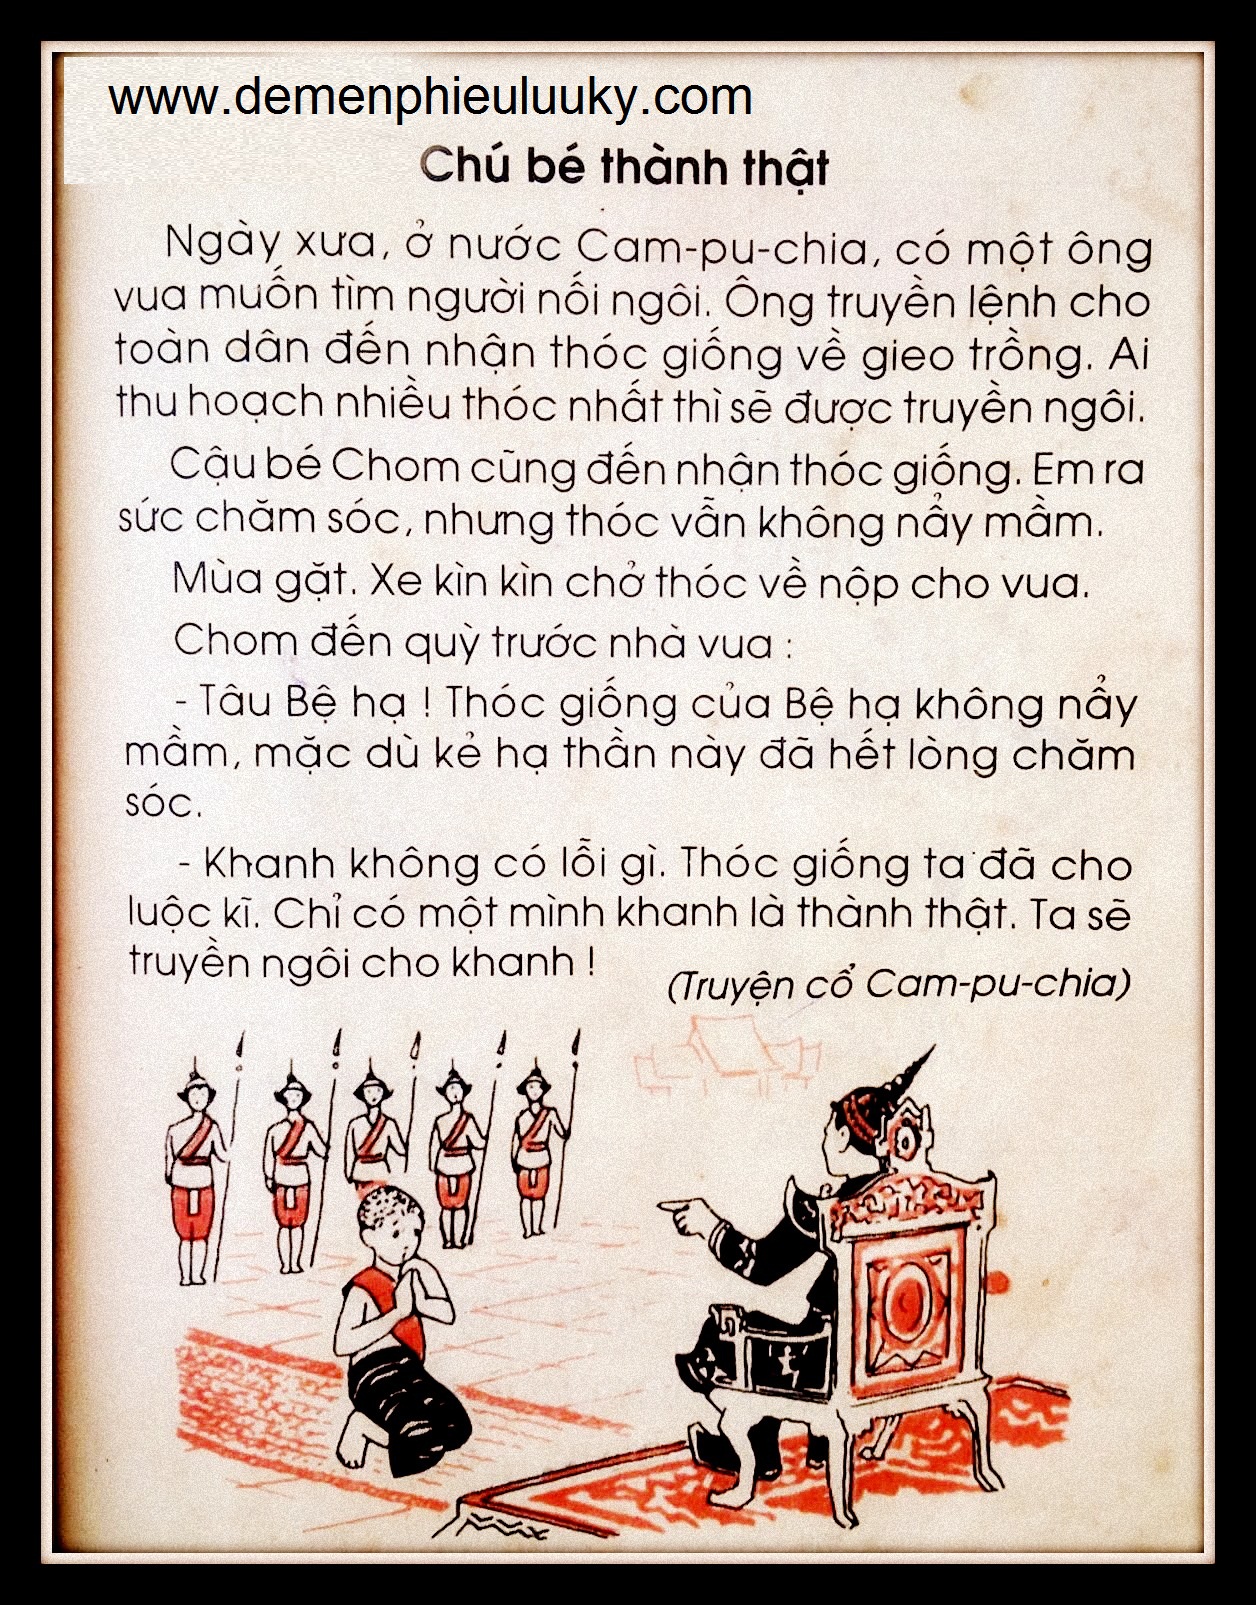 www.demenphieuluuky.com
Chú bé thành thật
Ngày xưa, ở nước Cam-pu-chia, có một ông
vua muốn tìm người nối ngôi. Ông truyền lệnh cho
toàn dân đến nhận thóc giống về gieo trồng. Ai
thu hoạch nhiều thóc nhất thì sẽ được truyền ngôi.
Cậu bé Chom cũng đến nhận thóc giống. Em ra
sức chăm sóc, nhưng thóc vẫn không nẩy mầm.
Mùa gặt. Xe kìn kìn chở thóc về nộp cho vua.
Chom đến quỳ trước nhà vua :
- Tâu Bệ hạ ! Thóc giống của Bệ hạ không nẩy
mầm, mặc dù kẻ hạ thần này đã hết lòng chăm
sóc.
- Khanh không có lỗi gì. Thóc giống ta đã cho
luộc kĩ. Chỉ có một mình khanh là thành thật. Ta sẽ
truyền ngôi cho khanh !
(Truyện cổ Cam-pu-chia)